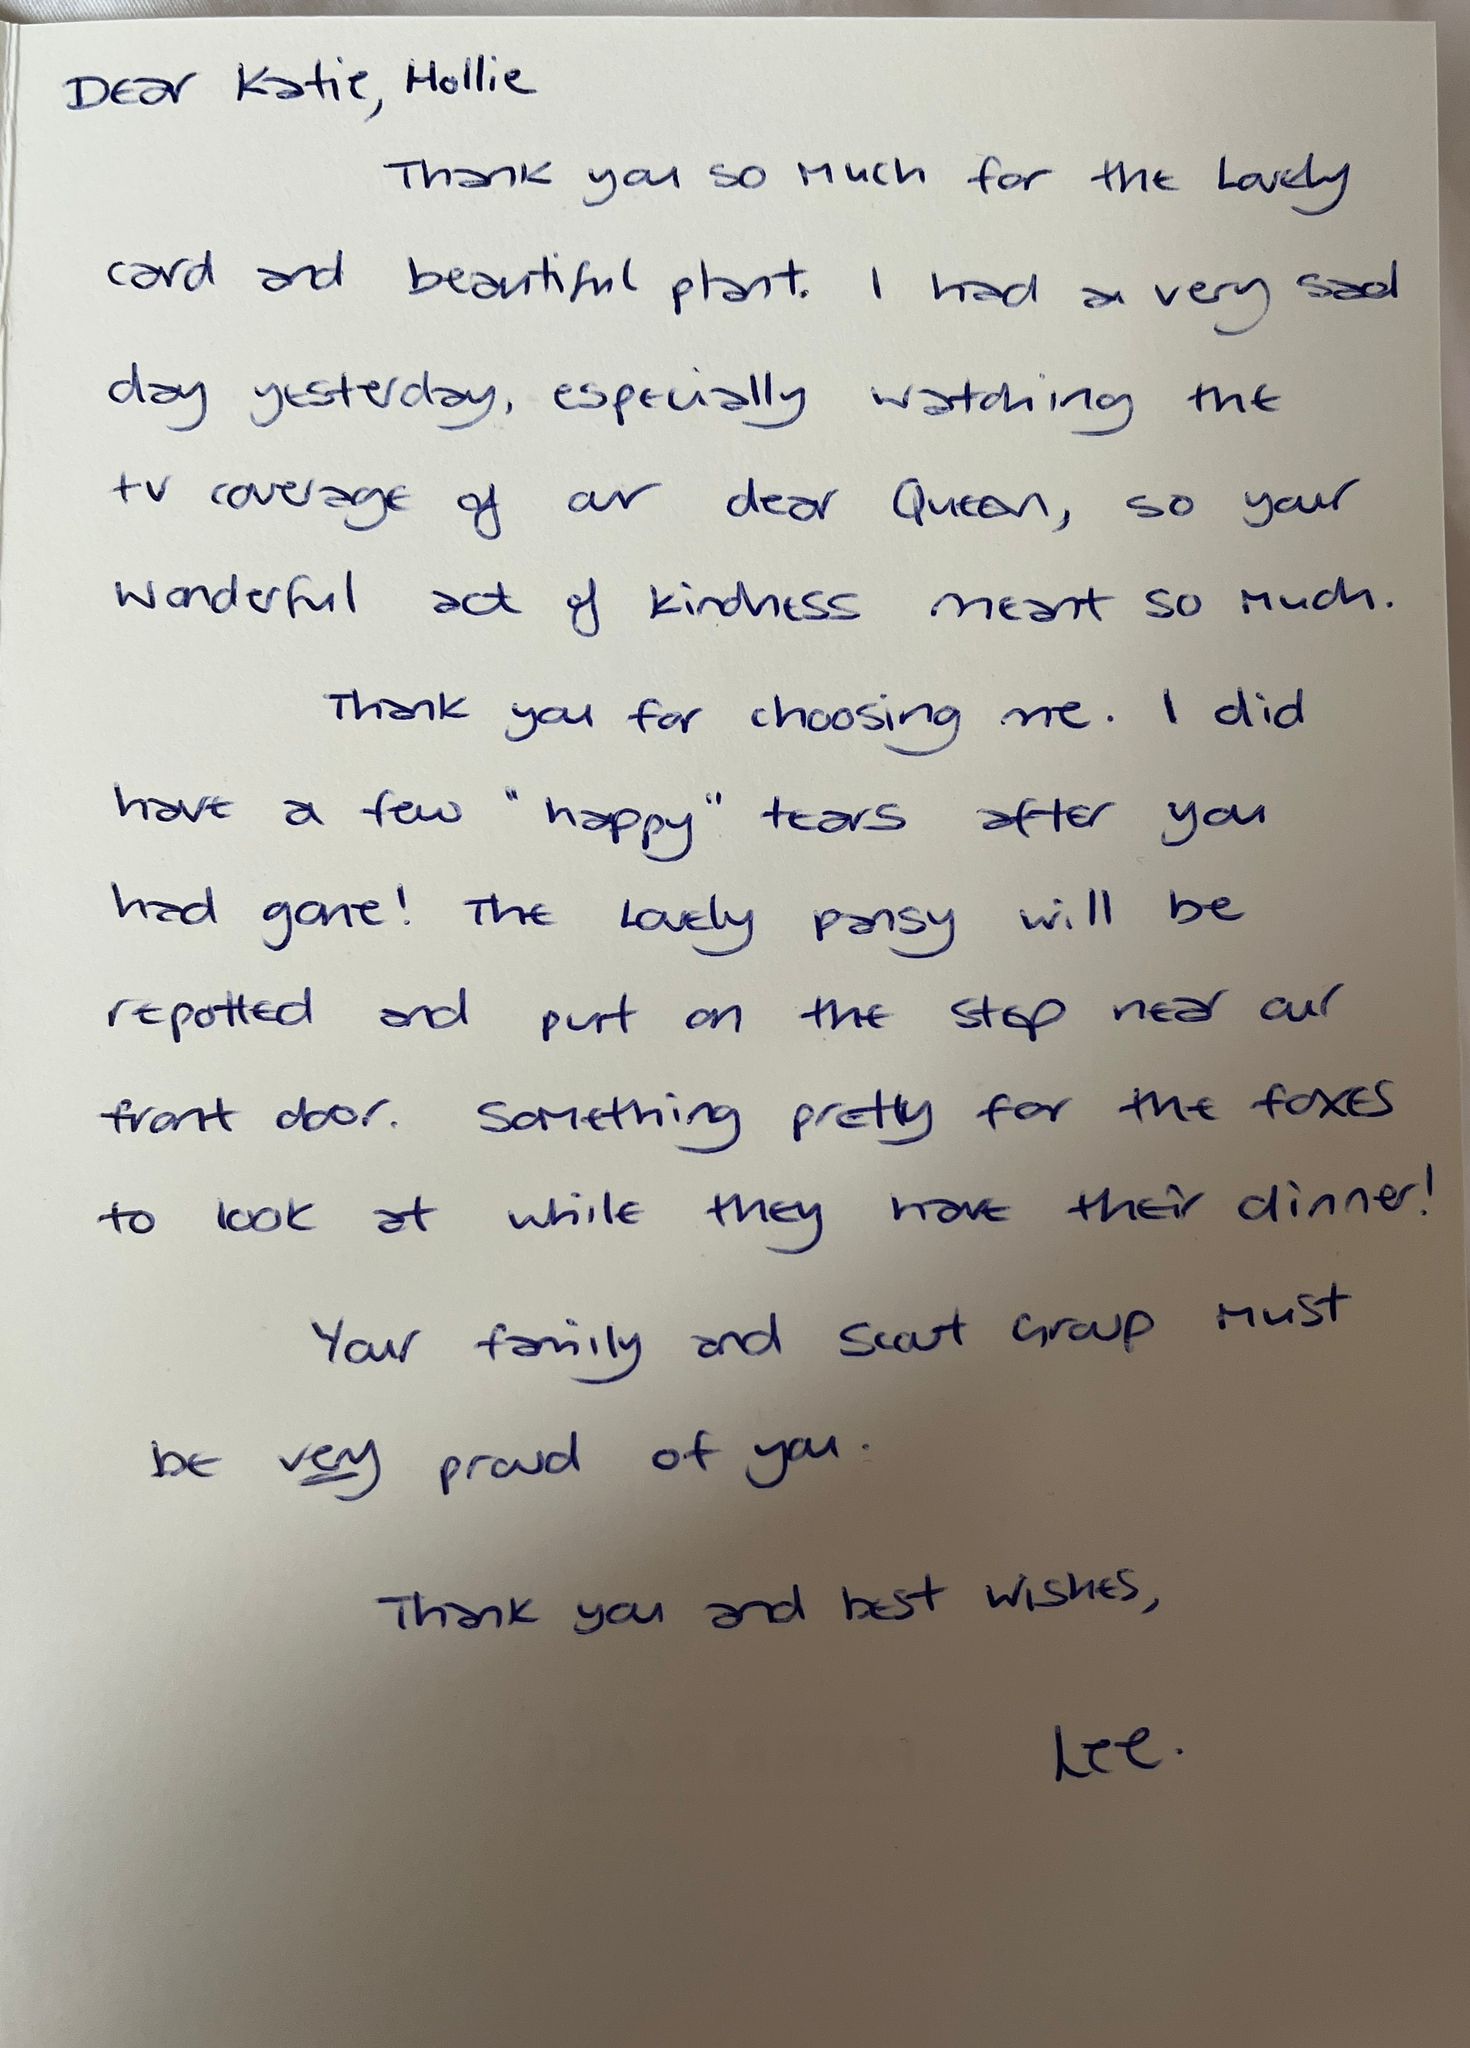 Dear Katie, Hollie
Thank you so much for the lovely
card and beautiful plant. I had a very sad
day yesterday, especially watching the
tv coverage of our dear Queen, so your
wonderful act of kindness meant so much.
Thank you for choosing me. I did
have a few "happy" tears after you
had gone! The lovely pansy will be
repotted and put on the step near our
front door. Something pretty for the foxes
to look at while they have their dinner!
Your family and Scout Group must
be very proud of you.
Thank you and best wishes,
Lee.